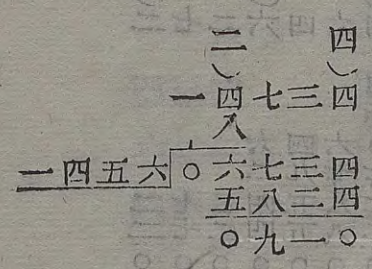 二 四
一四七三四
八
一四五六 ○六七三四
五八二四
○九一○